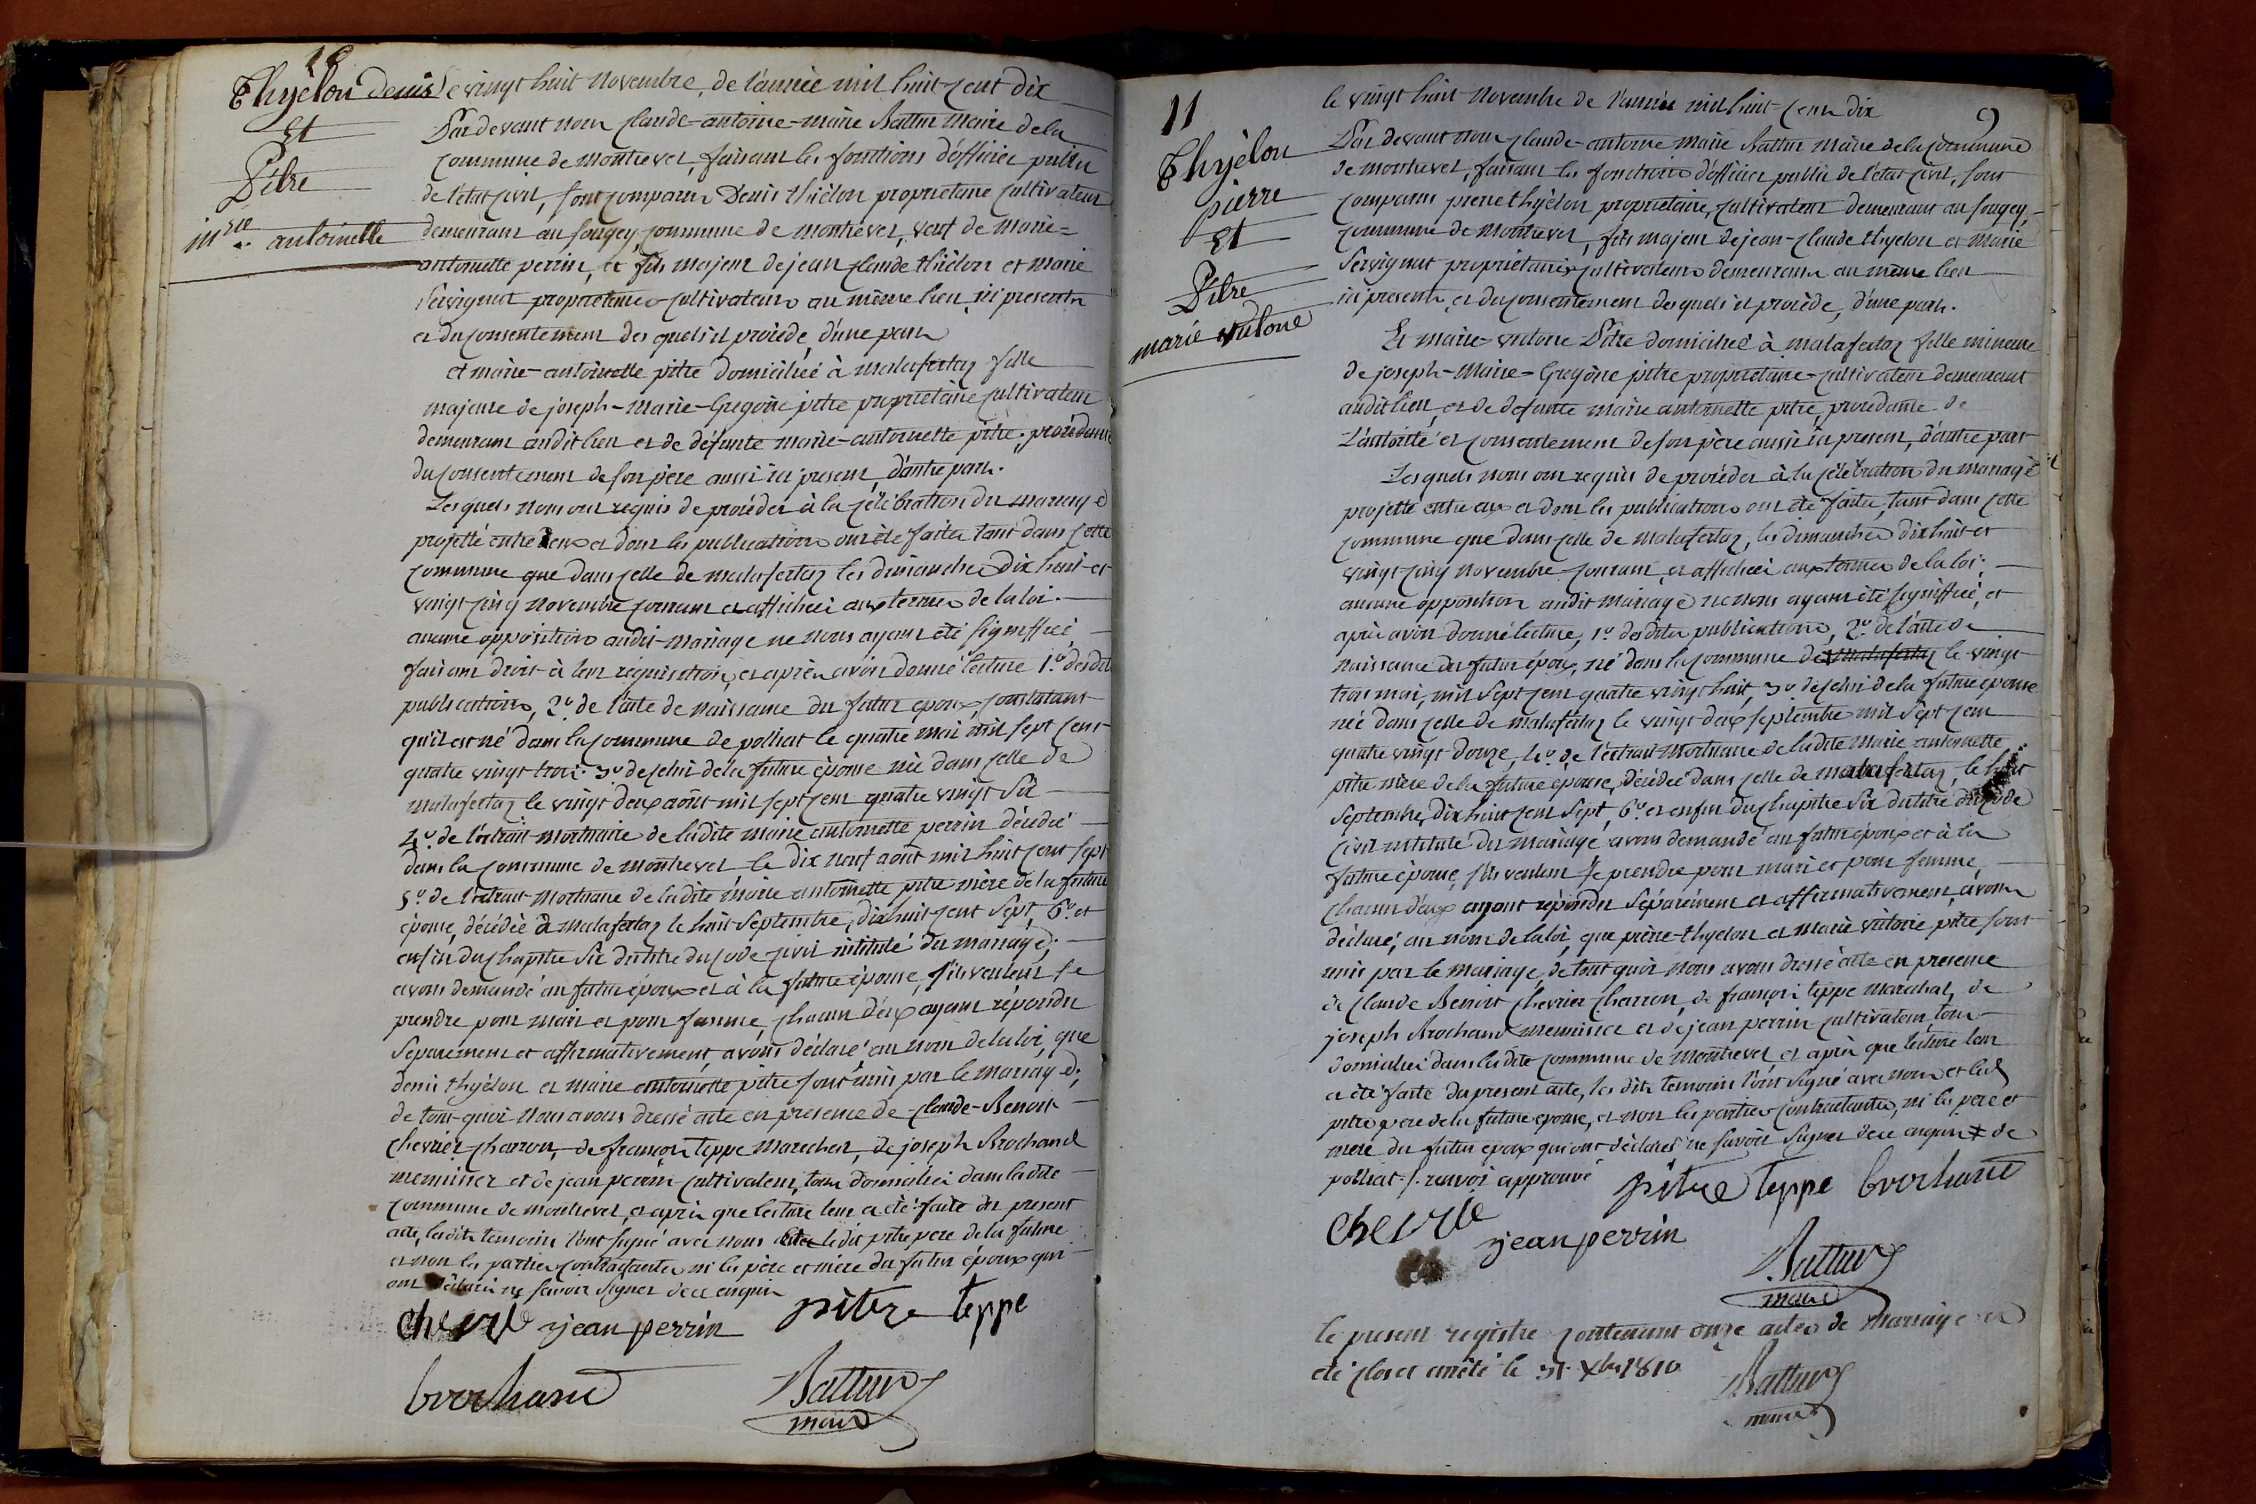 10
Thyélon denis
Et
Pitre
mrie antoinette
Le vingt huit novembre, de l'année mil huit cent dix
Par devant nous Claude-antoine-marie Battur maire de la
commune de montrevel, faisant les fonctions d'officier public
de l'état civil, sont comparus Denis thiélon proprietaire cultivateur
demeurant au fougey, commune de montrevel, veuf de marie-
antoinette perrin, et fils majeur de jean claude thiélon et marie
Servignat proprietaires cultivateurs au même lieu ici presents
et du consentement des quels il procède, d'une part
et marie-antoinette pitre domiciliée à malafertaz fille
majeure de joseph-Marie-Gregoire pitre proprietaire cultivateur
demeurant audit lieu et de défunte marie-antoinette pitre, procédante
du consentement de son père aussi ici present, d'autre part.
Les quels nous ont requis de procéder à la célébration du mariage
projetté entre eux et dont les publications ont été faites tant dans cette
commune que dans celle de malafertaz les dimanches Dix huit et
vingt cinq novembre courant et affichées aux termes de la loi.
aucune opposition audit mariage ne nous ayant été signiffiée
faisant droit à leur réquisition, et après avoir donné lecture 1º desdites
publications, 2º de l'acte de naissance du futur epoux, constatant
qu'il est né dans la commune de polliat le quatre mai mil sept cent
quatre vingt trois. 3º de celui de la future épouse née dans celle de
malafertaz le vingt deux août mil sept cent quatre vingt six
4º de l'extrait mortuaire de ladite marie antoinette perrin décedée
dans la commune de montrevel le dix neuf août mil huit cent sept
5º de l'extrait mortuaire de ladite marie antoinette pitre mère de la future
épouse, décédée à malafertaz le huit septembre, dix huit cent sept, 6º et
enfin du chapitre six du titre du code civil intitulé du mariage;
avons demandé au futur époux et à la future épouse, s'ils veulent se
prendre pour mari et pour femme, chacun d'eux ayant répondu
séparement et affirmativement, avons déclaré au nom de la loi, que
denis thyélon et marie antoinette pitre sont unis par le mariage;
de tout quoi nous avons dressé acte en presence de Claude-Benoit
Chevrier charron, de françois teppe marechal, de joseph Brochand
menuisier et de jean perrin cultivateur, tous domiciliés dans ladite
commune de montrevel, et après que lecture leur a été faite du present
acte, lesdits temoins l'ont signé avec nous ledit pitre, pere de la future
et non les parties contractantes ni les père et mère du futur époux qui
ont déclaré ne savoir signer de ce enquis
chevrié jean perrin pitre teppe
brochand Battur
maire
9
11
Thyélon
pierre
Et
Pitre
marie victoire
le vingt huit novembre de l'année mil huit-cent dix
Par devant nous Claude-antoine marie Battur maire de la commune
de montrevel, faisant les fonctions d'officier public de l'état civil, sont
comparus pierre thyélon proprietaire, cultivateur demeurant au fougey,
commune de montrevel, fils majeur de jean-claude thyelon et marie
Servignat proprietaires cultivateurs demeurants au même lieu
ici presents et du consentement desquels il procède, d'une part.
Et marie-victoire Pitre domiciliée à malafertaz fille mineure
de joseph-Marie-Gregoire pitre proprietaire-cultivateur demeurant
audit lieu, et de defunte marie antoinette pitre, procedante de
l'autorité et consentement de son père aussi ici present, d'autre part
Les quels nous ont requis de procéder à la célébration du mariage
projetté entre eux et dont les publications ont été faites, tant dans cette
commune que dans celle de malafertaz, les dimanches dix huit et
vingt cinq novembre courant et affichées aux termes de la loi.
aucune opposition audit mariage ne nous ayant été signiffiée, et
après avoir donné lecture, 1º desdites publications, 2º de l'acte de
naissance du futur époux, né dans la commune de malafertaz le vingt
trois mai, mil sept cent quatre vingt huit, 3º de celui de la future epouse
née dans celle de malafertaz le vingt deux septembre mil sept cent
quatre vingt douze, 4º de l'extrait mortuaire de ladite marie antoinette
pitre mère de la future épouse, décédée dans celle de malafertaz, le huit
septembre, dix huit cent sept, 6º et enfin du chapitre six du titre du code
civil intitulé du mariage avons demandé au futur époux et à la
future épouse, s'ils veulent se prendre pour mari et pour femme,
chacun d'eux ayant répondu séparément et affirmativement, avons
déclaré, au nom de la loi, que pierre-thyelon et marie victoire pitre sont
unis par le mariage, de tout quoi nous avons dressé acte en presence
de Claude Benoit Chevrier Charron, de françois teppe marechal, de
joseph Brochand menuisier et de jean perrin cultivateur, tous
domiciliés dans ladite commune de montrevel et après que lecture leur
a été faite du present acte, les dits temoins l'ont signé avec nous et led.
pitre pere de la future epouse, et non les parties contractantes, ni les pere et
mere du futur epoux qui ont déclaré ne savoir signer de ce enquis ≠ de
polliat renvoi approuvé pitre teppe brochand
chevrié
jean perrin
Battur
maire
le present registre contenant onze actes de mariage a
été clos et arrêté le 31 Xbre 1810
Battur
maire